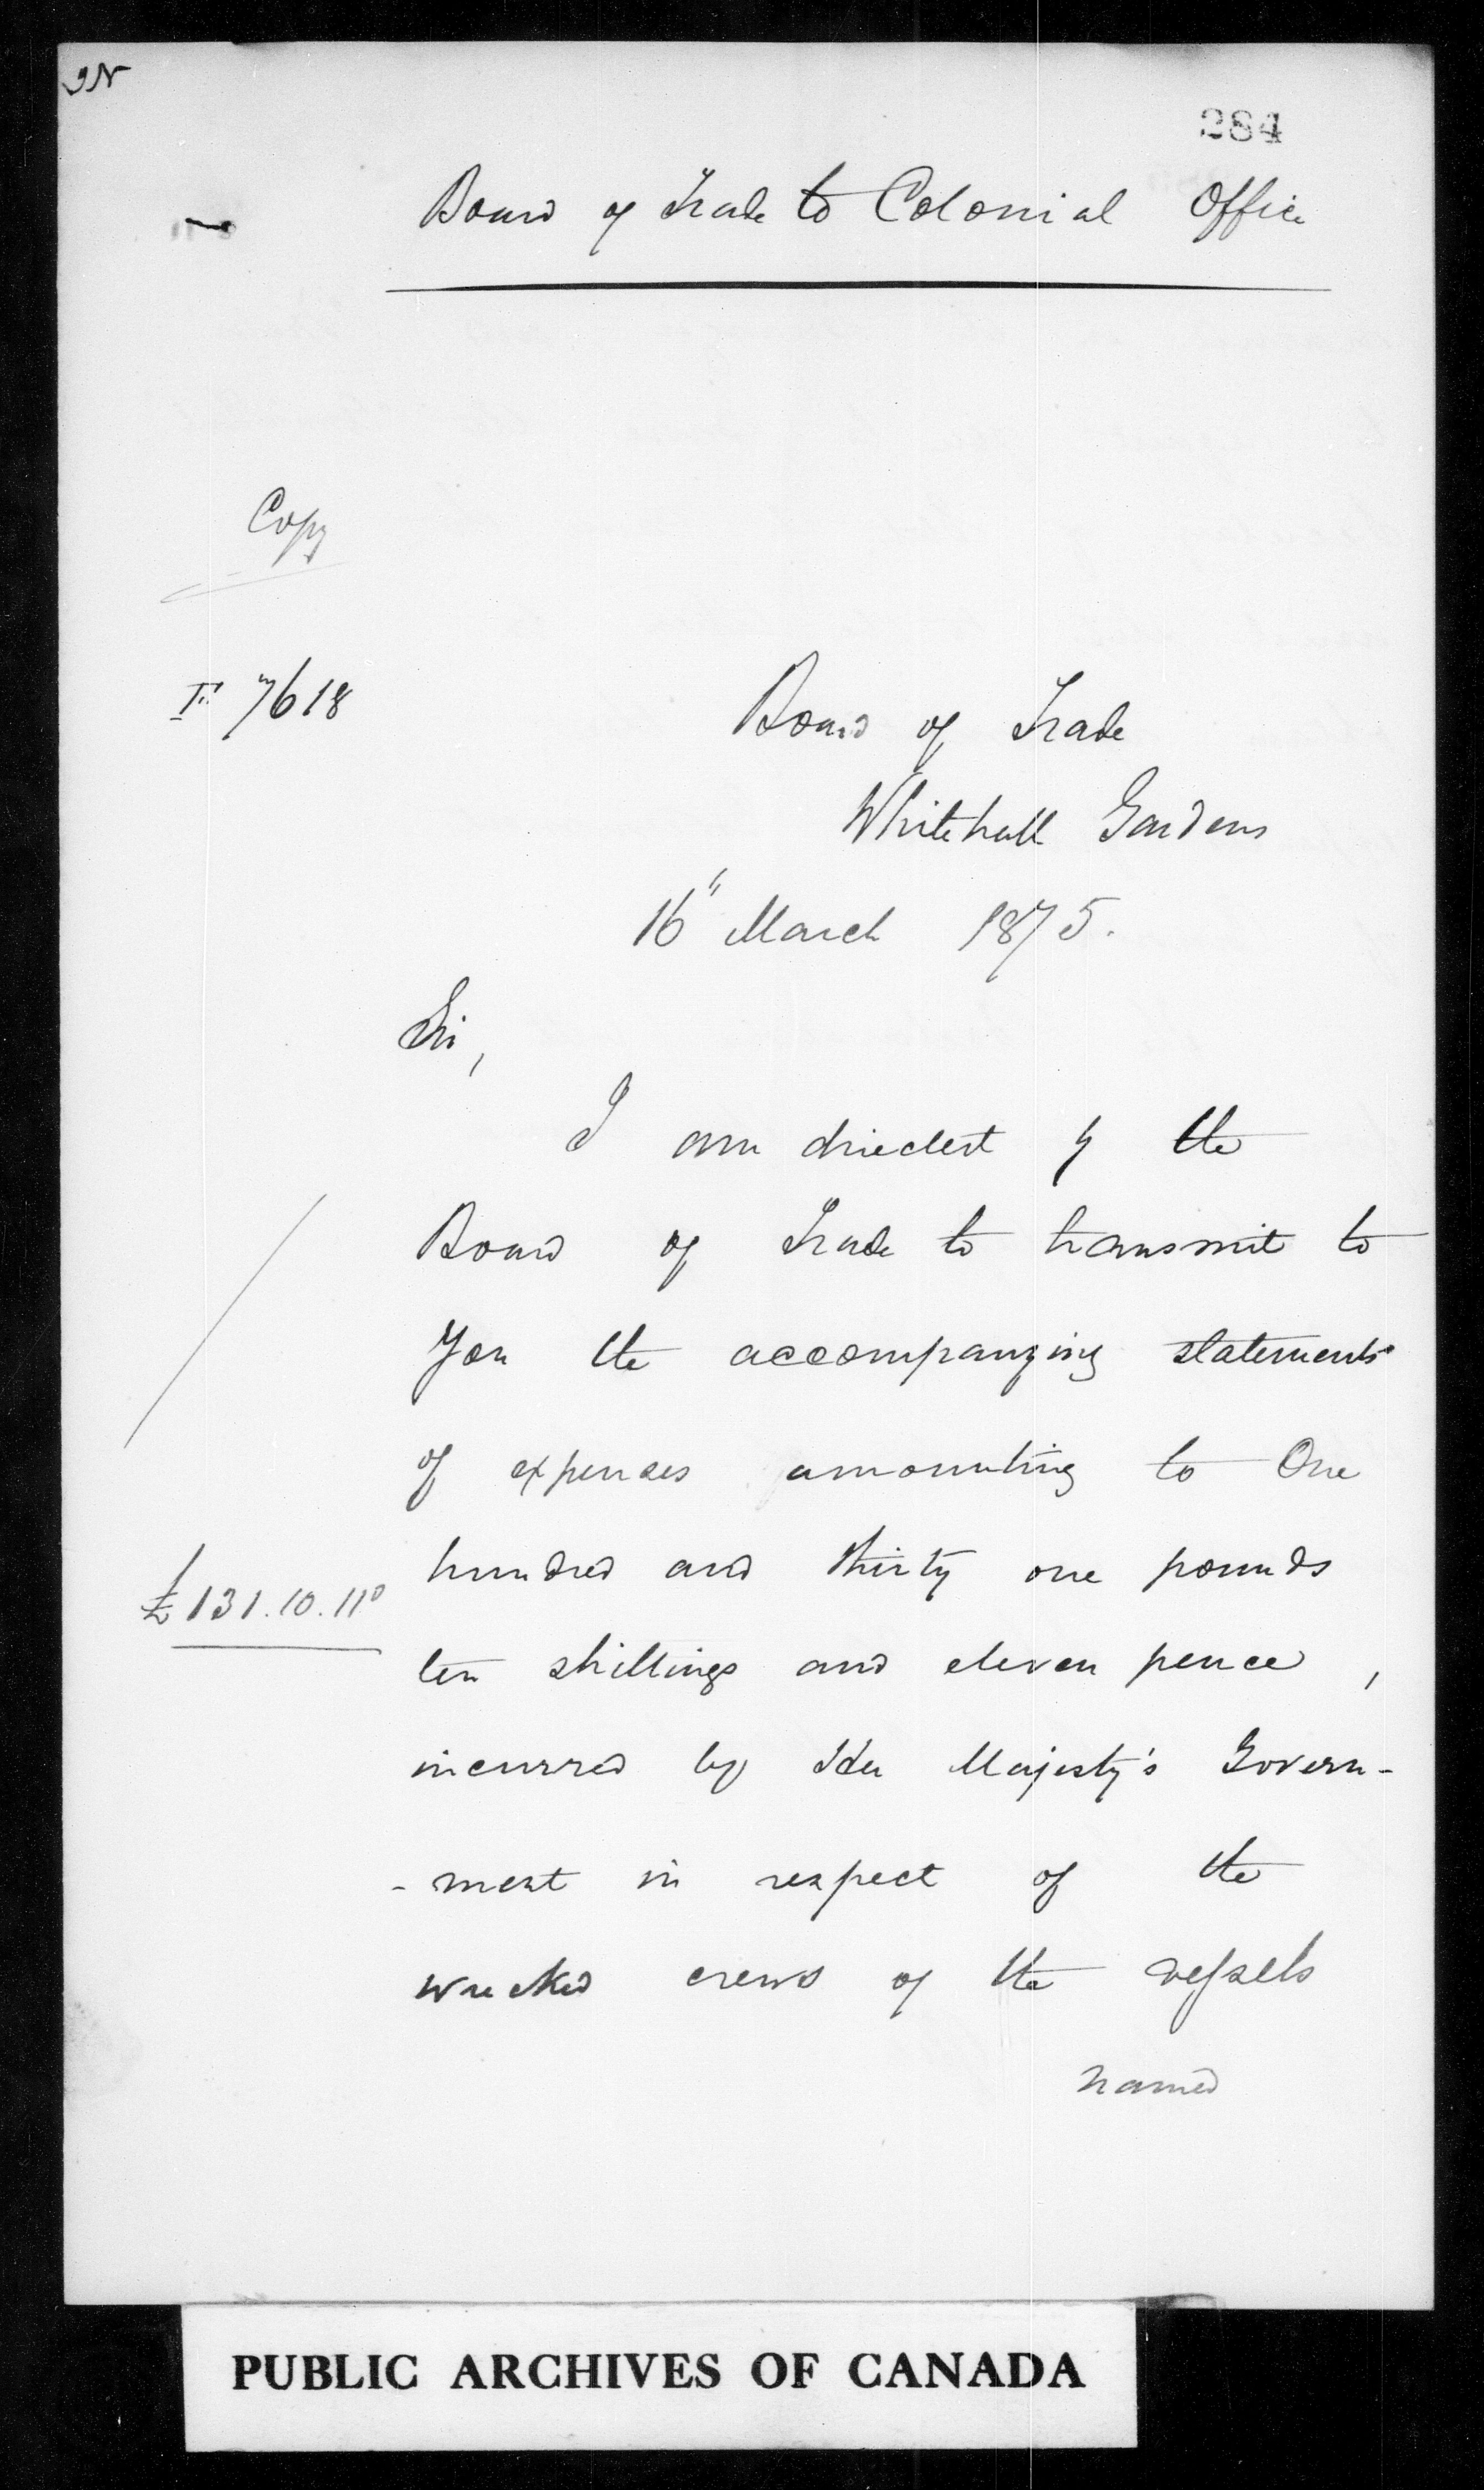 284
Board of Trade to Colonial Office
Copy
7618
Board of Trade
Whitehall Gardens
16" March 1875.
Sir,
I am directed by the
Board of Trade to transmit to
you the accompanying statements
of expenses amounting to One
hundred and thirty one pounds
£131.10.11
ten shillings and eleven pence,
incurred by Her Majesty's Govern-
-ment in respect of the
wrecked crews of the vessels
named
PUBLIC ARCHIVES OF CANADA